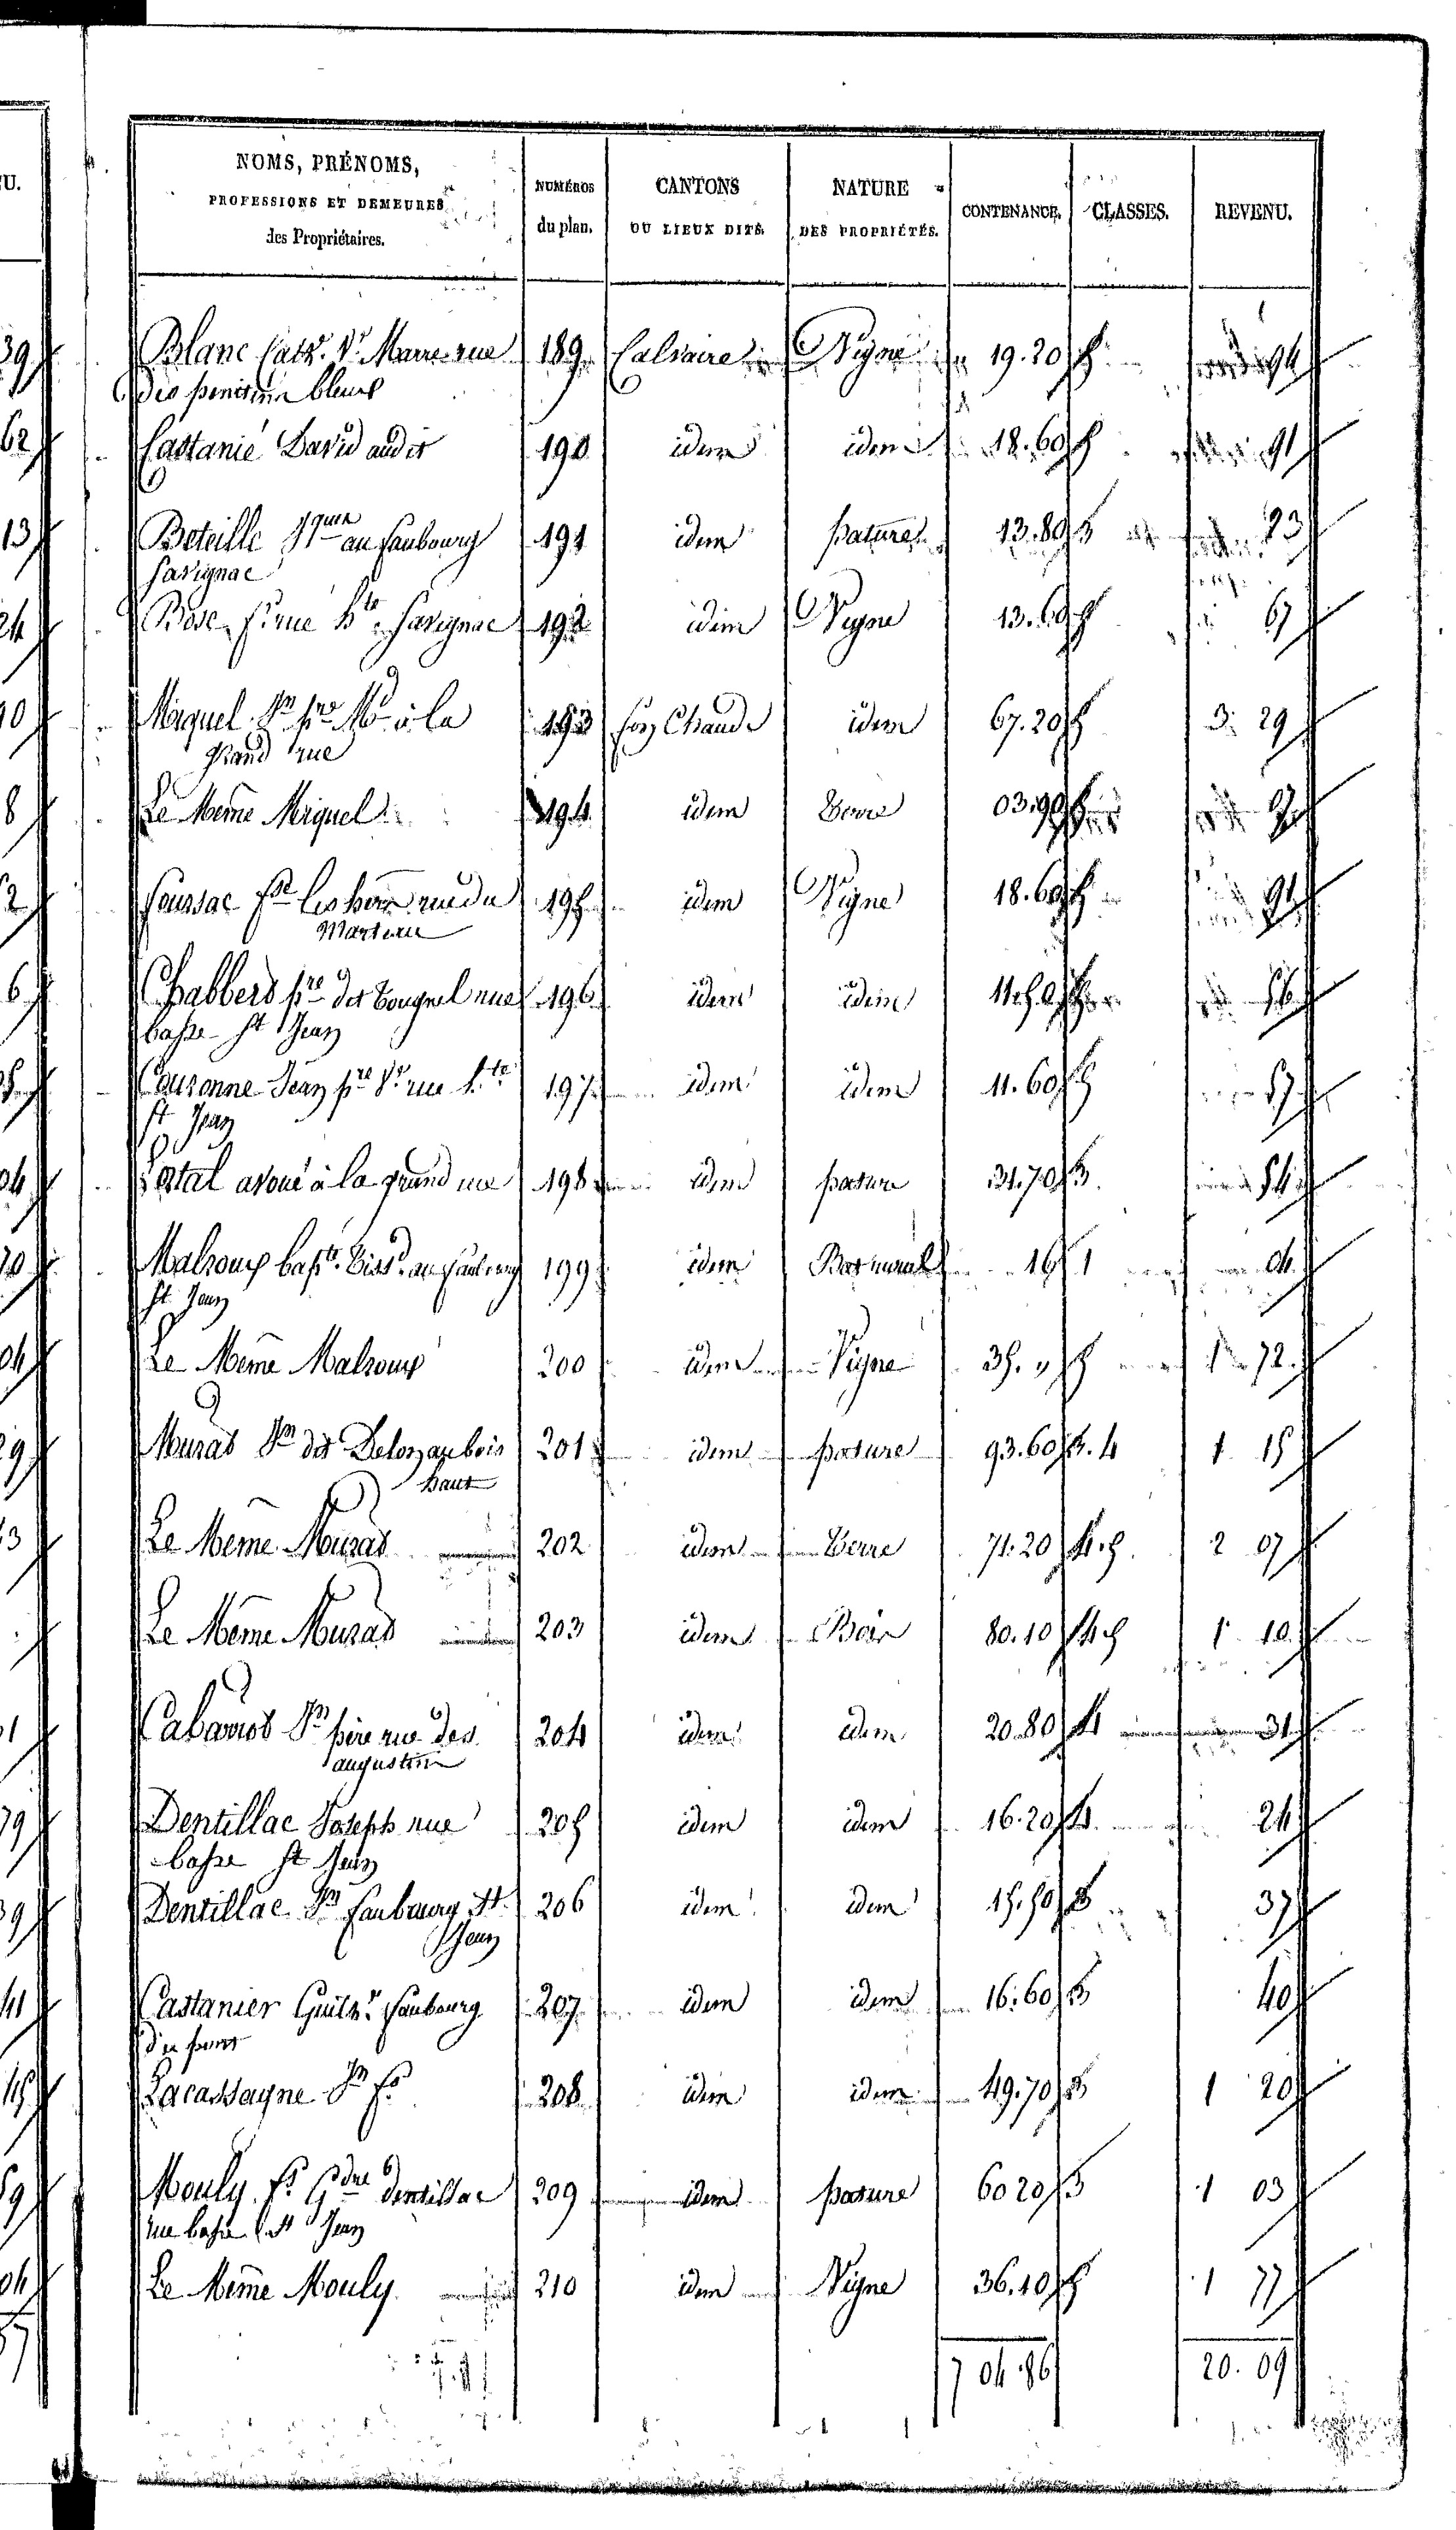 NOMS, PRÉNOMS, PROFESSIONS ET DEMEURES des Propriétaires. | NUMÉROS du plan. | CANTONS OU LIEUX DITS. | NATURE DES PROPRIÉTÉS. | CONTENANCE. | CLASSES. | REVENU.
Blanc Cathe. Ve Marre rue 189 Calvaire Vigne 19.20 5 94
des penitens bleus
Castanié David audit 190 idem idem 18.60 5 91
Beteille au faubourg 191 idem pature 13.80 3 23
Savignac
Bose rue hte Savignac 192 idem Vigne 13.60 5 67
Miquel Jn pre Md à la 193 fon Chaude idem 67.20 5 3 29
grand rue
Le Meme Miquel 194 idem Terre 03.90 5
Foussac les hers rue du 195 idem Vigne 18.60 5 91
Marteau
Chabbert pre dit Touquel rue 196 idem idem 11.50 5 56
basse St Jean
Couronne Jean pre Ve rue hte 197 idem idem 11.60 5 57
St Jean
Lostal avoué à la grand rue 198 idem pature 31.70 3 54
Malroux bapte. au faubourg 199 idem Bat rural 16 1 04
St Jean
Le Même Malroux 200 idem Vigne 35. " 5 1 72
Murat Jn dit Delon au bois 201 idem pature 93.60 3.4 1 15
haut
Le Meme Murat 202 idem Terre 71.20 4.5 2 07
Le Même Murat 203 idem Bois 80.10 4.5 1 10
Cabarrot Jn père rue des 204 idem idem 20.80 4 31
augustins
Dentillac Joseph rue 205 idem idem 16.20 4 24
basse St Jean
Dentillac Jn faubourg St 206 idem idem 15.50 3 37
Jean
Castanier Guilhe. faubourg 207 idem idem 16.60 3 40
du pont
Lacassagne Jn fs 208 idem idem 49.70 3 1 20
Mouly fs Gdre dentillac 209 idem pature 60 20 3 1 03
rue basse St Jean
Le Même Mouly 210 idem Vigne 36.10 5 1 77
7 04.86 20.09